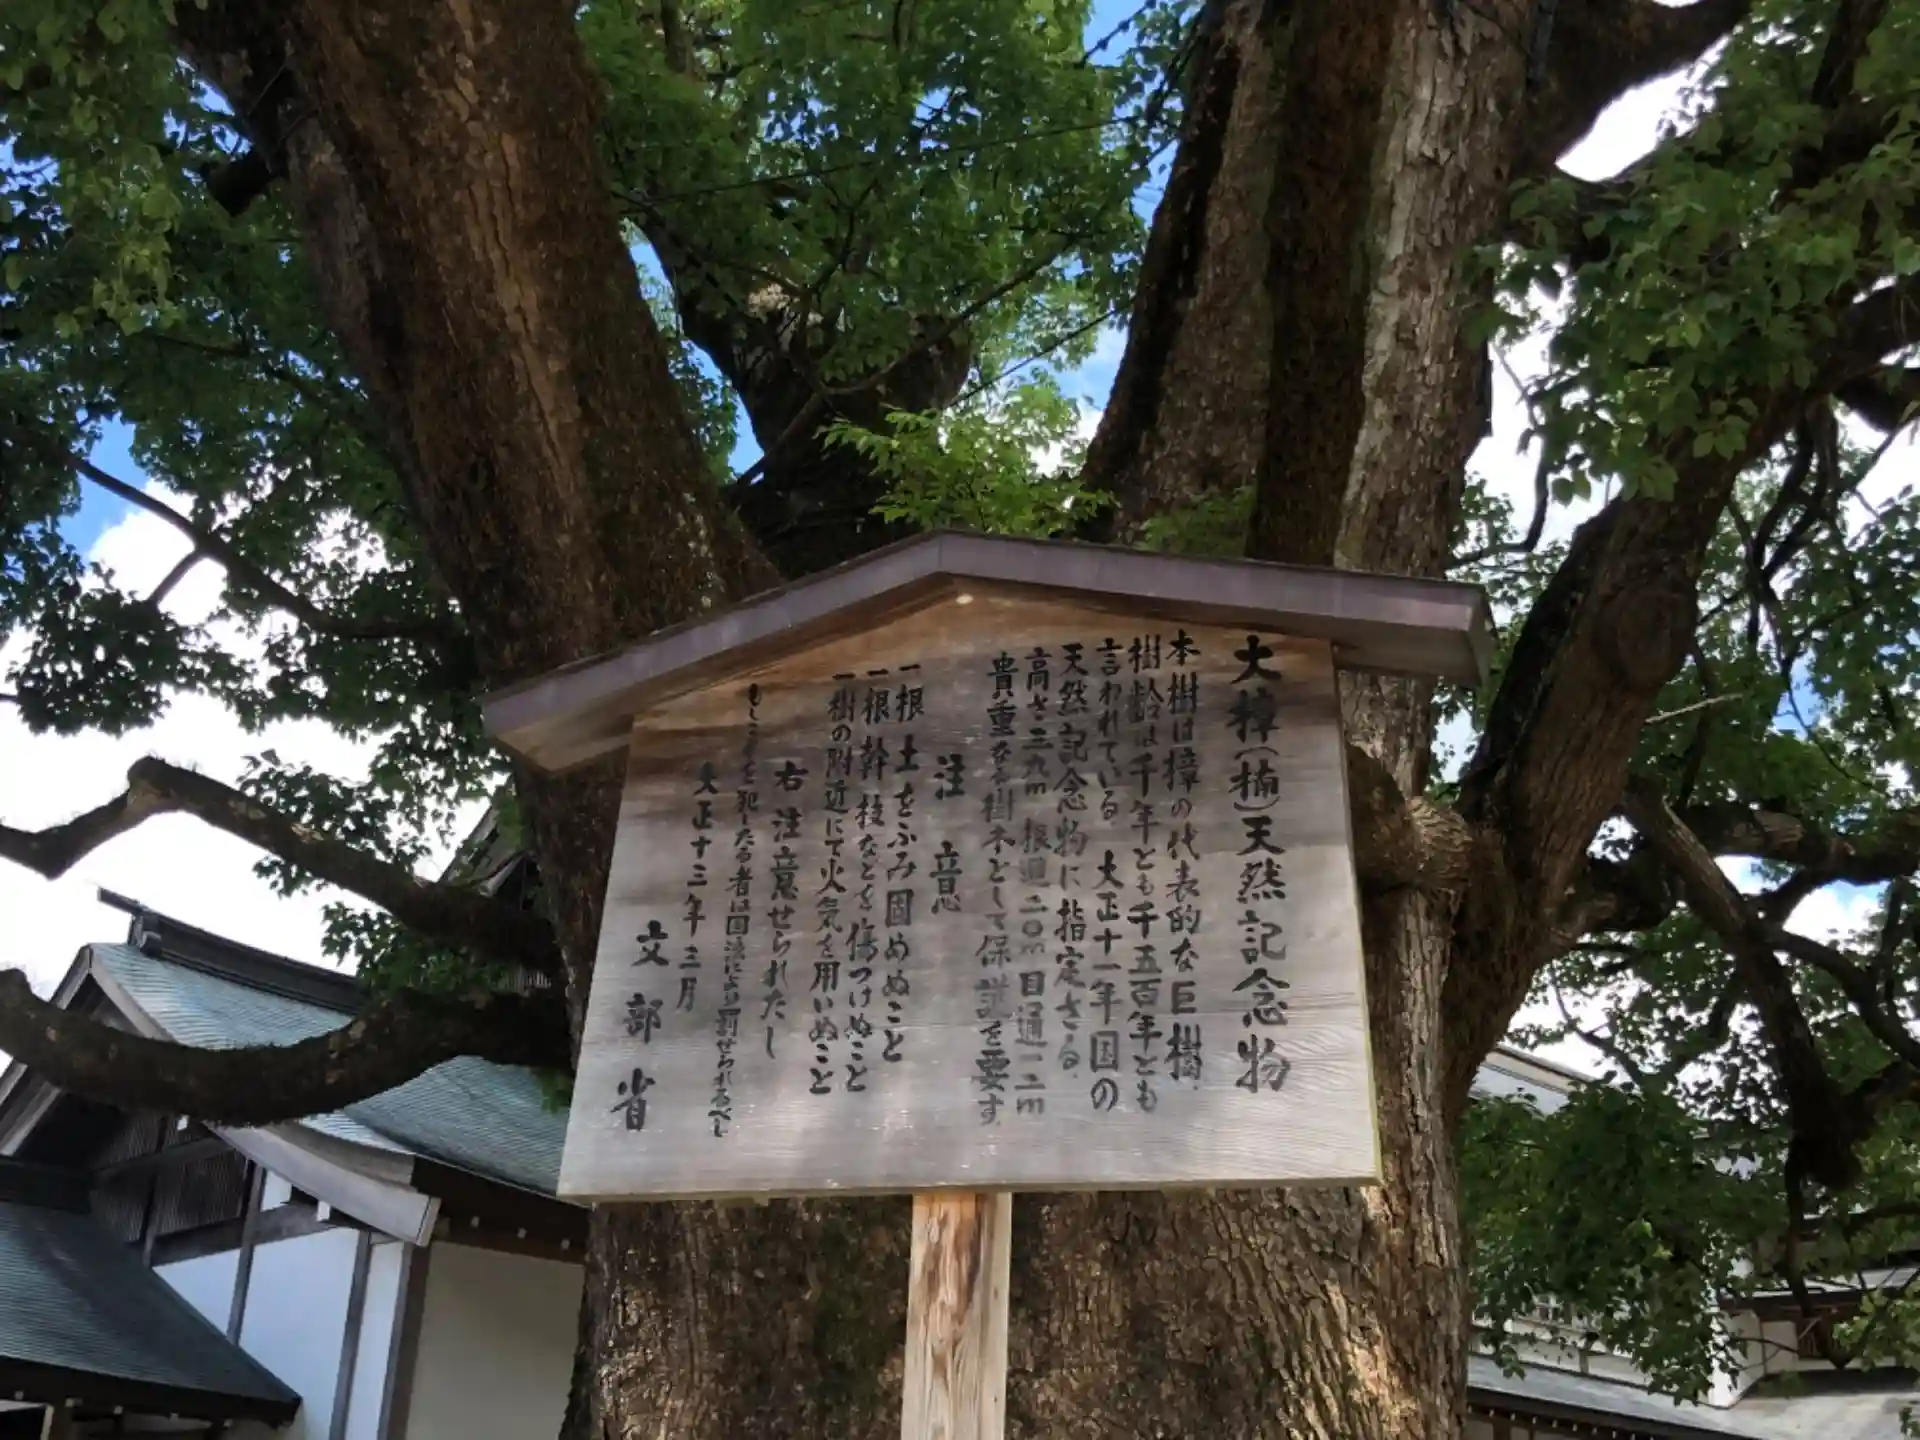 大樟(楠)天然記念物
本樹は樟の代表的な巨樹、
樹齢は千年とも千五百年とも
言われている 大正十一年国の
天然記念物に指定さる、
高さ三九m 根廻二〇m 目通一二m
貴重なる樹木として保護を要す、
注意
一根土をふみ固めぬこと
一根幹枝などを傷つけぬこと
一樹の附近にて火気を用いぬこと
右注意せられたし
もしこれを犯したる者は国法により罰せられるべし
大正十三年三月
文部省